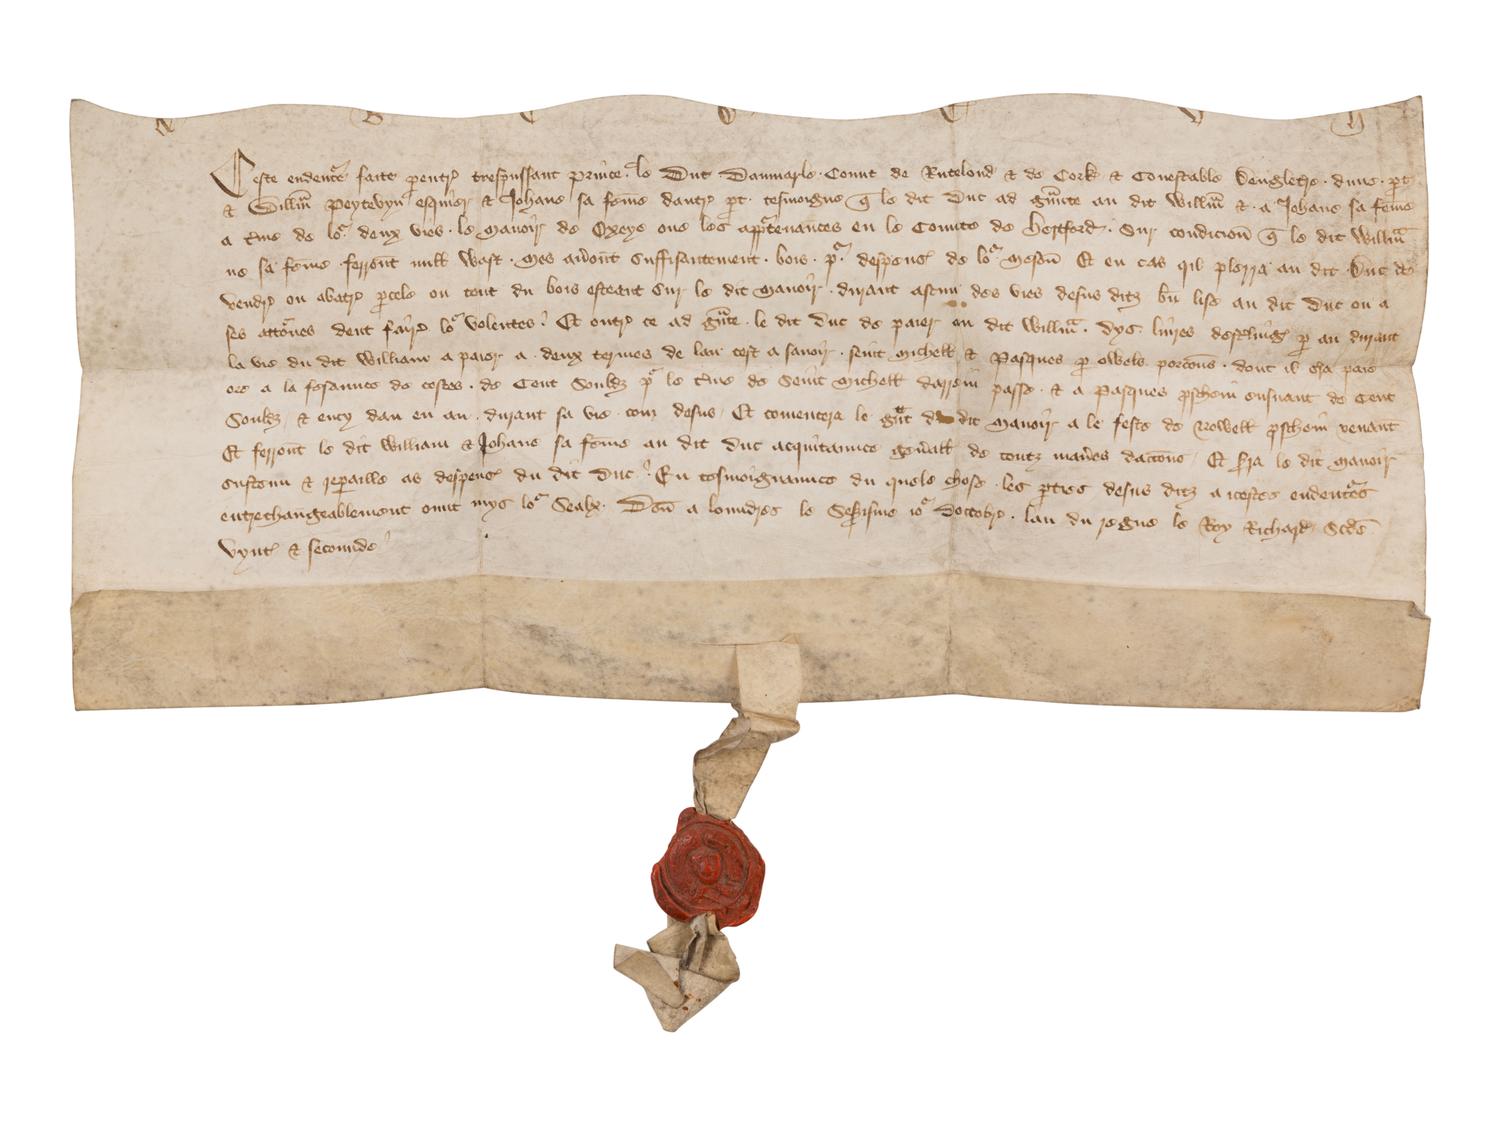 Ceste endentᵉ faite pentʳ trespussant Prince le Duc Daumarle Count de Rutelond & de Cork & Conestable Dengletre dune pt
& Willm Peytewyn esquier & Johane sa feme dautr pt tesmoigne q le dit Duc ad gunte au dit Willm & a Johane sa feme
a tme de loʳ deux vies le manoir de Oxeye oue les apptenances en le Comite de Hertford Sur condicion q le dit Willm
ne sa feme ferront null Wast mes aueront suffisantement bois pʳ despens de loʳ meson Et en cas qil plerra au dit Duc de
vendr ou abatr pcele ou tout du bois esteant sur le dit manoir durant ascun des vies desus ditz bn lise au dit Duc ou a
ses attornes dent faire loʳ volentes Et outr ce ad gunte le dit Duc de paier au dit Willm dys liures desterling p an durant
la vie du dit William a paier a deux termes de lan cest a sauoir seint Michell & Pasques p owels porcons dont il era paie
ore a la fesannce de cestes de Cent Souldz pʳ le tme de Seint Michell darrein passe & a Pasques pschein ensuant de Cent
Souldz & ency dan en an durant sa vie com desus Et comencera le gunt du dit manoir a le feste de Nowell pschein venant
Et ferront le dit William & Johane sa feme au dit Duc acquitannce genall de toutz maneres daccons Et sra le dit manoir
sustenu & reparaille as despens du dit Duc En tesmoignannce du quele chose les pties desus ditz a icestes endentᵉs
entrechangeablement ount mys loʳ Sealx Don a loundres le Sessisme ioʳ Doctobre lan du regne le Roy Richard Scde
vynt & secounde